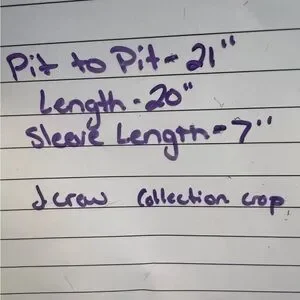 Pit to Pit - 21"
Length - 20"
Sleeve Length - 7"
J crew Collection crop